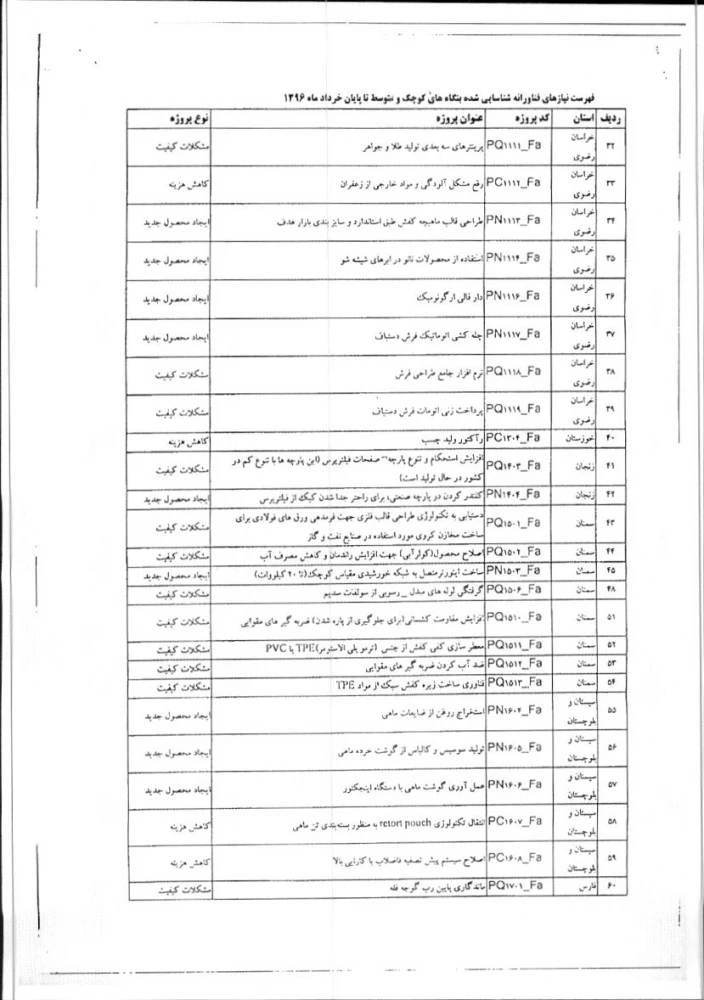 فهرست نیازهای فناورانه شناسایی شده بنگاه های کوچک و متوسط تا پایان خرداد ماه ۱۳۹۶
ردیف استان کد پروژه عنوان پروژه نوع پروژه
۳۲ خراسان رضوی PQ۱۱۱۱_Fa پرینترهای سه بعدی تولید طلا و جواهر مشکلات کیفیت
۳۳ خراسان رضوی PC۱۱۱۲_Fa رفع مشکل آلودگی و مواد خارجی از زعفران کاهش هزینه
۳۴ خراسان رضوی PN۱۱۱۳_Fa طراحی قالب ماهیچه کفش طبق استاندارد و سایز بندی بازار هدف ایجاد محصول جدید
۳۵ خراسان رضوی PN۱۱۱۴_Fa استفاده از محصولات نانو در ابرهای شیشه شو ایجاد محصول جدید
۳۶ خراسان رضوی PN۱۱۱۶_Fa دار قالی ارگونومیک ایجاد محصول جدید
۳۷ خراسان رضوی PN۱۱۱۷_Fa چله کشی اتوماتیک فرش دستباف ایجاد محصول جدید
۳۸ خراسان رضوی PQ۱۱۱۸_Fa نرم افزار جامع طراحی فرش مشکلات کیفیت
۳۹ خراسان رضوی PQ۱۱۱۹_Fa پرداخت زنی اتومات فرش دستباف مشکلات کیفیت
۴۰ خوزستان PC۱۳۰۴_Fa رآکتور ولید چسب کاهش هزینه
۴۱ زنجان PQ۱۴۰۳_Fa افزایش استحکام و تنوع پارچه صفحات فیلترپرس (این پارچه ها با تنوع کم در
کشور در حال تولید است) مشکلات کیفیت
۴۲ زنجان PN۱۴۰۴_Fa کلندر کردن در پارچه صنعتی، برای راحتر جدا شدن کیک از فیلترپرس ایجاد محصول جدید
۴۳ سمنان PQ۱۵۰۱_Fa دستیابی به تکنولوژی طراحی قالب فلزی جهت فرمدهی ورق های فولادی برای
ساخت مخازن کروی مورد استفاده در صنایع نفت و گاز مشکلات کیفیت
۴۴ سمنان PQ۱۵۰۲_Fa اصلاح محصول(کولر آبی) جهت افزایش راندمان و کاهش مصرف آب مشکلات کیفیت
۴۵ سمنان PN۱۵۰۳_Fa ساخت اینورتر متصل به شبکه خورشیدی مقیاس کوچک(تا ۲۰ کیلووات) ایجاد محصول جدید
۴۸ سمنان PQ۱۵۰۶_Fa گرفتگی لوله های مبدل _ رسوبی از سولفات سدیم مشکلات کیفیت
۵۱ سمنان PQ۱۵۱۰_Fa افزایش مقاومت کششی(برای جلوگیری از پاره شدن) ضربه گیر های مقوایی مشکلات کیفیت
۵۲ سمنان PQ۱۵۱۱_Fa معطر سازی کفی کفش از جنس (ترمو پلی الاستومر)TPE یا PVC مشکلات کیفیت
۵۳ سمنان PQ۱۵۱۲_Fa ضد آب کردن ضربه گیر های مقوایی مشکلات کیفیت
۵۴ سمنان PQ۱۵۱۳_Fa فناوری ساخت زیره کفش سبک از مواد TPE مشکلات کیفیت
۵۵ سیستان و بلوچستان PN۱۶۰۴_Fa استخراج روغن از ضایعات ماهی ایجاد محصول جدید
۵۶ سیستان و بلوچستان PN۱۶۰۵_Fa تولید سوسیس و کالباس از گوشت خرده ماهی ایجاد محصول جدید
۵۷ سیستان و بلوچستان PN۱۶۰۶_Fa عمل آوری گوشت ماهی با دستگاه اینجکتور ایجاد محصول جدید
۵۸ سیستان و بلوچستان PC۱۶۰۷_Fa انتقال تکنولوژی retort pouch به منظور بسته بندی تن ماهی کاهش هزینه
۵۹ سیستان و بلوچستان PC۱۶۰۸_Fa اصلاح سیستم پیش تصفیه فاضلاب با کارایی بالا کاهش هزینه
۶۰ فارس PQ۱۷۰۱_Fa ماندگاری پایین رب گوجه فله مشکلات کیفیت